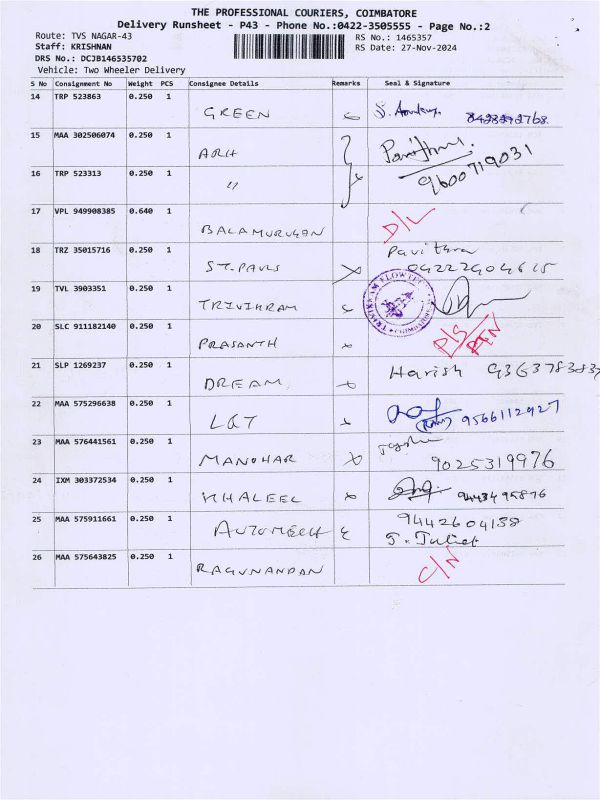 THE PROFESSIONAL COURIERS, COIMBATORE
Delivery Runsheet - P43 - Phone No.:0422-3505555 - Page No.:2
Route: TVS NAGAR-43
Staff: KRISHNAN
DRS No.: DCJB146535702
Vehicle: Two Wheeler Delivery
RS No.: 1465357
RS Date: 27-Nov-2024
S No Consignment No Weight PCS Consignee Details Remarks Seal & Signature
14 TRP 523863 0.250 1 GREEN
15 MAA 302506074 0.250 1 ARH
16 TRP 523313 0.250 1 〃 9600719031
17 VPL 949908385 0.640 1 BALAMURUGAN D/L
18 TRZ 35015716 0.250 1 ST.PAULS Pavithra 04222904615
19 TVL 3903351 0.250 1 TRIVIKRAM
20 SLC 911182140 0.250 1 PRASANTH D/S RTN
21 SLP 1269237 0.250 1 DREAM Harish
22 MAA 575296638 0.250 1 L&T 9566112927
23 MAA 576441561 0.250 1 MANOHAR 9025319976
24 IXM 303372534 0.250 1 KHALEEL 9443495876
25 MAA 575911661 0.250 1 AUTOMECH 9442604158
J. Juliet
26 MAA 575643825 0.250 1 RAGUNANDAN C/N